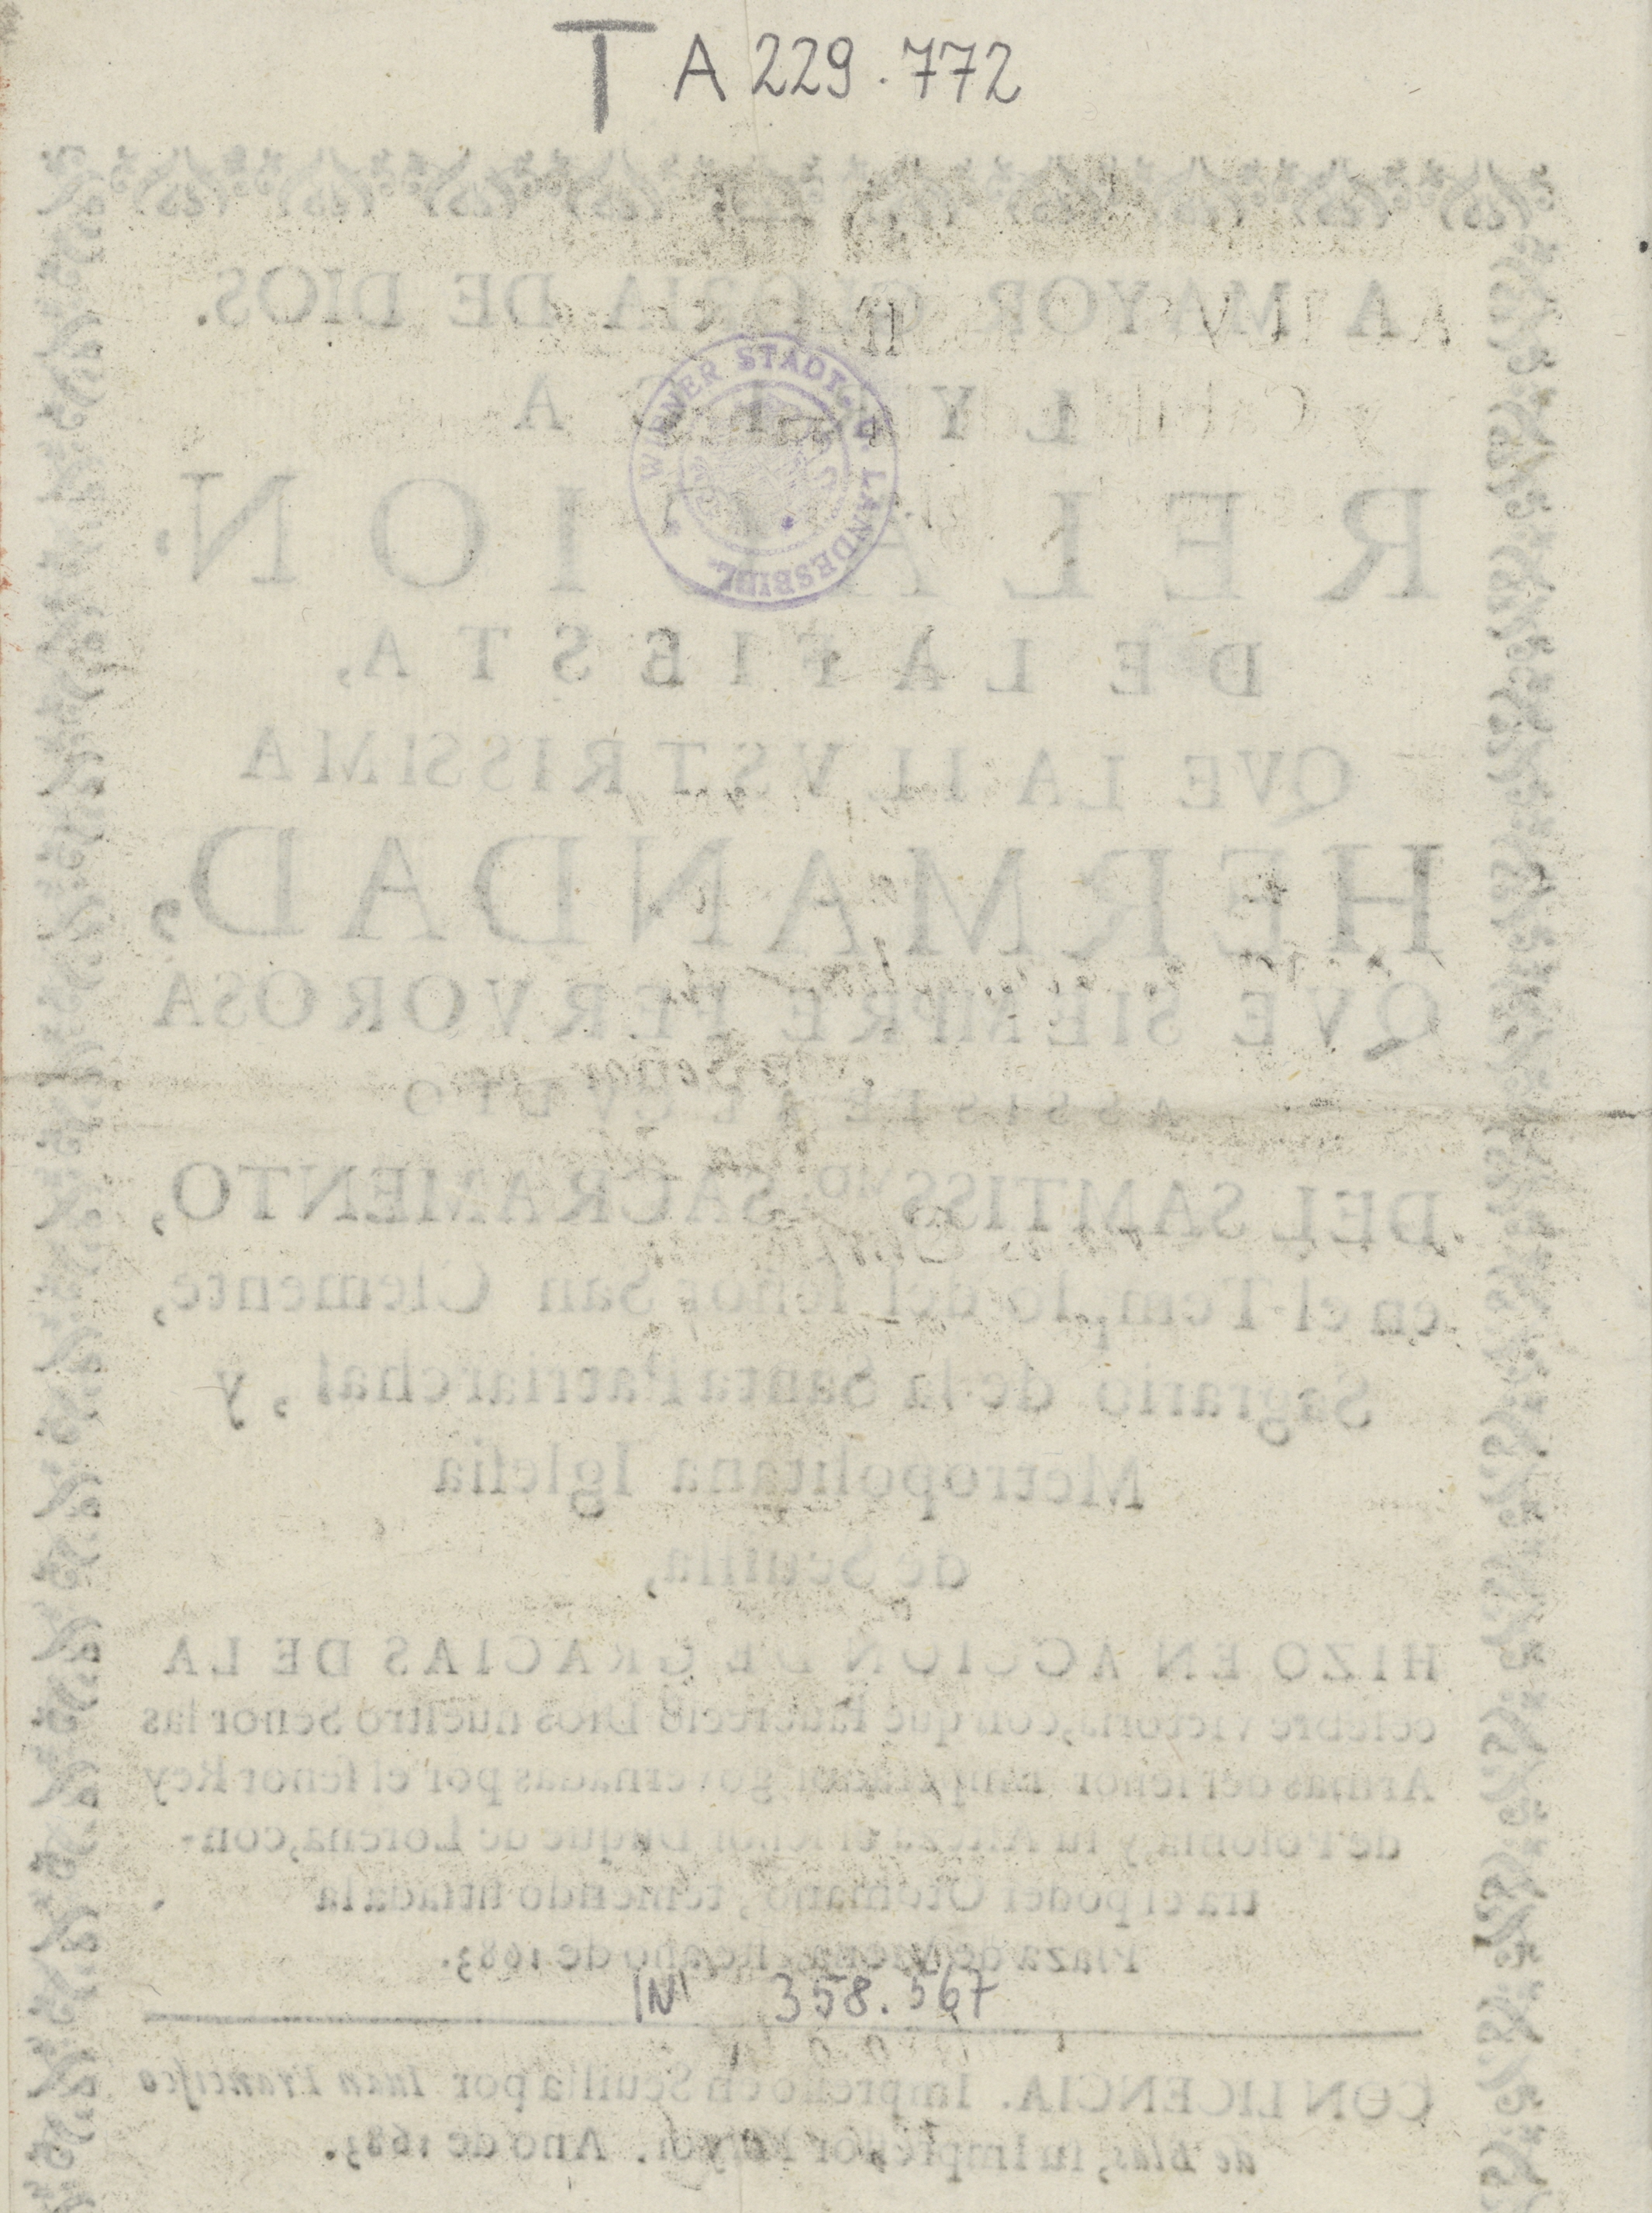 T A 229.772
A MAYOR GLORIA DE DIOS.
RELACION
DE LA FIESTA,
QVE LA ILVSTRISSIMA
HERMANDAD,
QVE SIEMPRE FERVOROSA
ASSISTE AL CVLTO
DEL SANTISS.MO SACRAMENTO,
en el Templo del señor San Clemente,
Sagrario de la Santa Patriarchal, y
Metropolitana Iglesia
de Seuilla,
HIZO EN ACCION DE GRACIAS DE LA
celebre victoria, con que fauoreciò Dios nuestro Señor las
Armas del señor Emperador, governadas por el señor Rey
de Polonia, y su Alteza el señor Duque de Lorena, con-
tra el poder Otomano, teniendo sitiada la
Plaza de Viena, este año de 1683.
CON LICENCIA. Impresso en Seuilla por Iuan Francisco
de Blas, su Impressor Mayor. Año de 1683.
WIENER STADT- U. LANDESBIBL.
IN 358.567